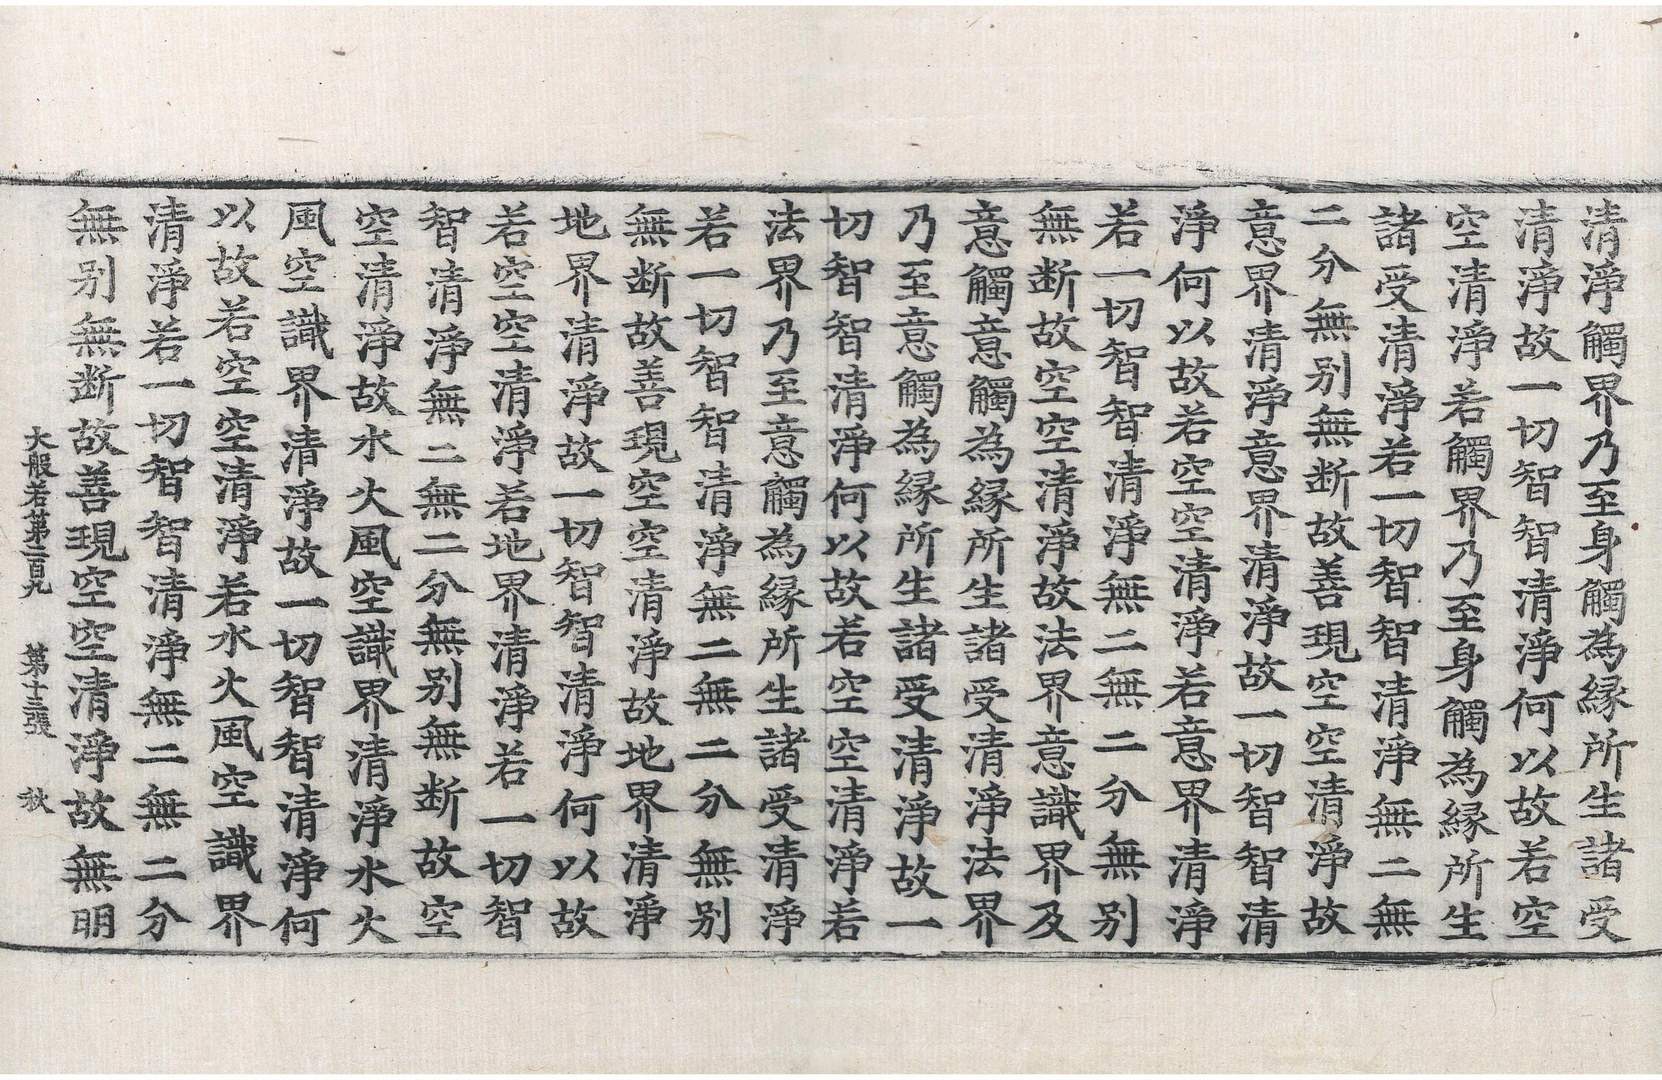 清淨觸界乃至身觸為縁所生諸受
清淨故一切智智清淨何以故若空
空清淨若觸界乃至身觸為縁所生
諸受清淨若一切智智清淨無二無
二分無别無断故善現空空清淨故
意界清淨意界清淨故一切智智清
淨何以故若空空清淨若意界清淨
若一切智智清淨無二無二分無别
無断故空空清淨故法界意識界及
意觸意觸為縁所生諸受清淨法界
乃至意觸為縁所生諸受清淨故一
切智智清淨何以故若空空清淨若
法界乃至意觸為縁所生諸受清淨
若一切智智清淨無二無二分無别
無断故善現空空清淨故地界清淨
地界清淨故一切智智清淨何以故
若空空清淨若地界清淨若一切智
智清淨無二無二分無别無断故空
空清淨故水火風空識界清淨水火
風空識界清淨故一切智智清淨何
以故若空空清淨若水火風空識界
清淨若一切智智清淨無二無二分
無别無断故善現空空清淨故無明
大般若第二百九 第十三張 秋